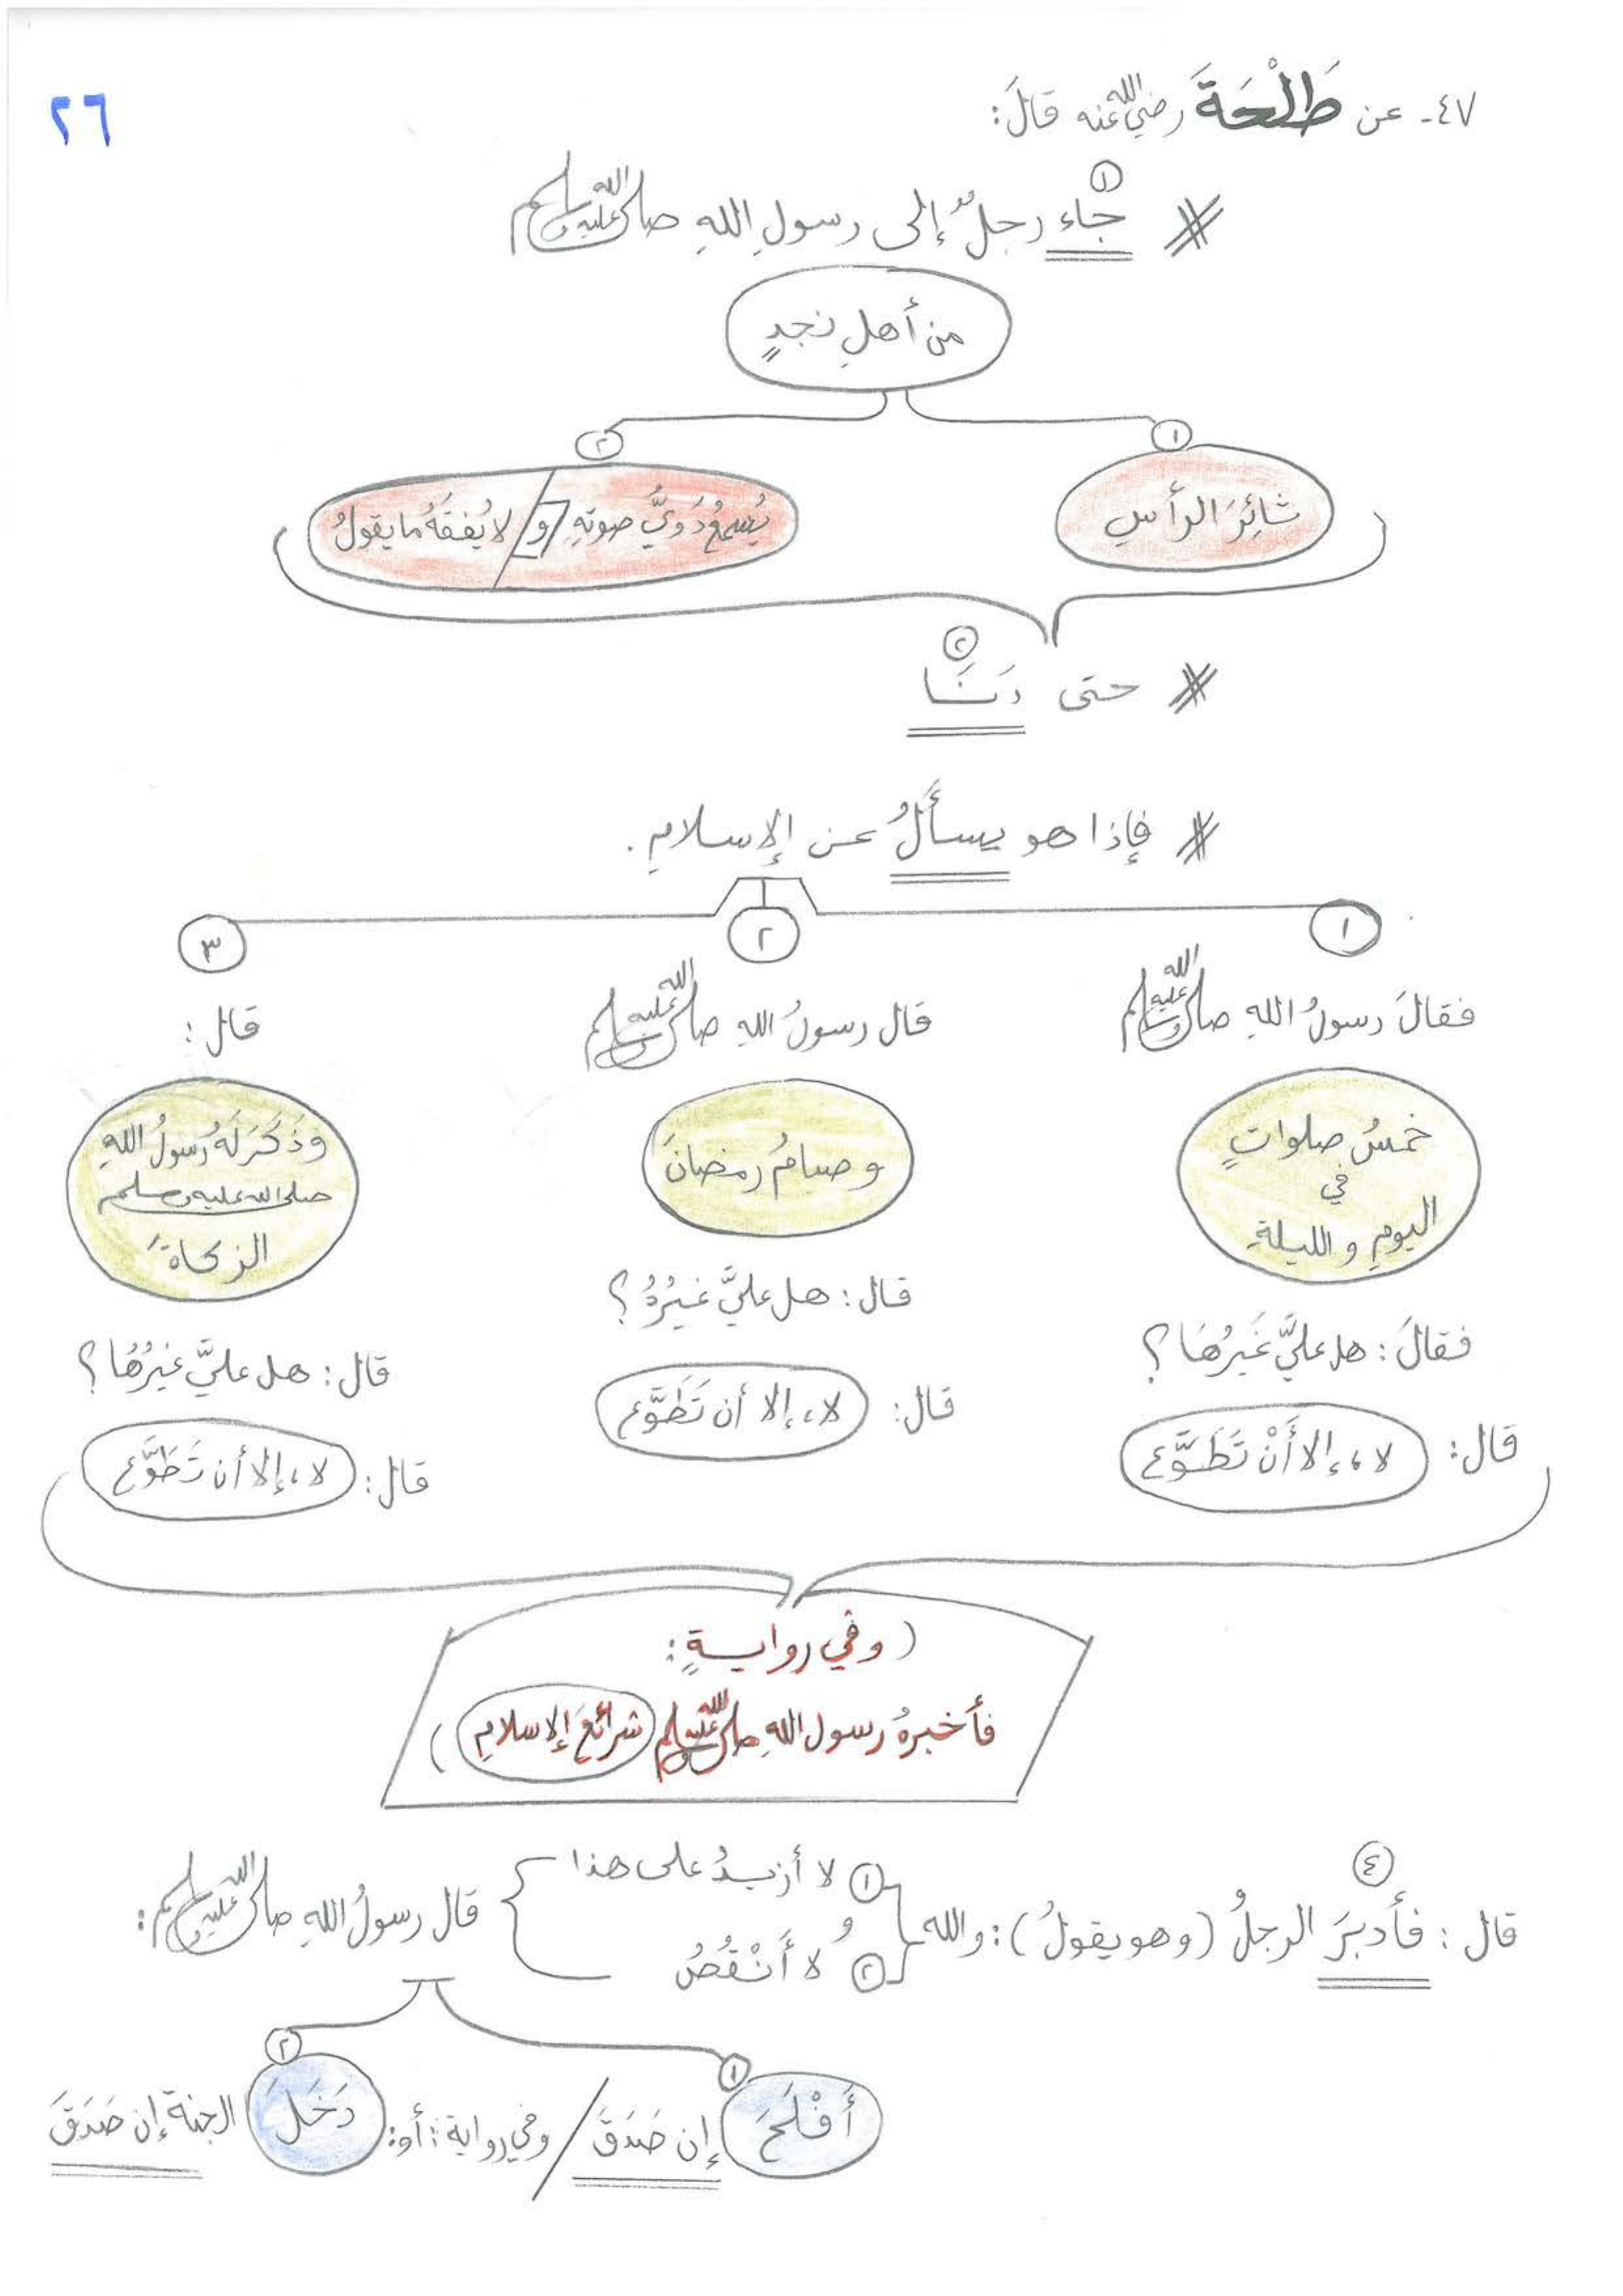 ٢٦
٤٧- عن طَلْحَةَ رضي الله عنه قالَ:
١
# جاء رجلٌ إلى رسولِ اللهِ صلى الله عليه وسلم
من أهلِ نجدٍ
١ ٢
ثائِرَ الرأسِ
يُسمعُ دَوِيُّ صوتِهِ و لا يُفقَهُ ما يقولُ
٢
# حتى دَنَا
# فإذا هو يسأَلُ عن الإسلامِ.
١ ٢ ٣
فقالَ رسولُ اللهِ صلى الله عليه وسلم
خمسُ صلواتٍ
في
اليومِ والليلةِ
فقالَ: هل عليَّ غَيرُهَا؟
قال: لا، إلا أَنْ تَطَوَّع
قال رسولُ اللهِ صلى الله عليه وسلم
وصيامُ رمضانَ
قال: هل عليَّ غيرُهُ؟
قال: لا، إلا أن تَطَوَّع
قال:
وذَكَرَ لَهُ رسولُ اللهِ
صلى الله عليه وسلم
الزكاةَ
قال: هل عليَّ غيرُهَا؟
قال: لا، إلا أن تَطَوَّع
(وفي روايةٍ:
فأخبرهُ رسول اللهِ صلى الله عليه وسلم شرائعَ الإسلامِ)
٤
قال: فأدبرَ الرجلُ (وهو يقولُ): والله
١ لا أزيدُ على هذا
و
٢ لا أَنْقُصُ
قال رسولُ اللهِ صلى الله عليه وسلم:
١ ٢
أَفْلَحَ إن صَدَقَ / وفي رواية: أو: دَخَلَ الجنةَ إن صَدَقَ